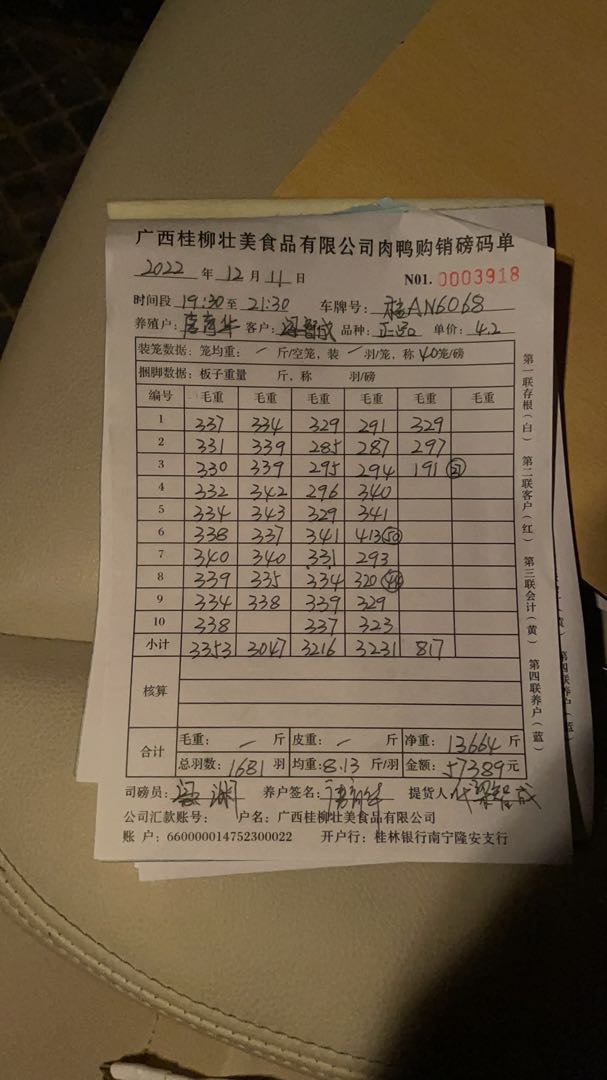 广西桂柳壮美食品有限公司肉鸭购销磅码单
2022 年 12 月 11 日 N01. 0003918
时间段 19:30 至 21:30 车牌号: 桂AN6068
养殖户: 客户: 品种: 正品 单价: 4.2
装笼数据: 笼均重: / 斤/空笼, 装 / 羽/笼, 称 40 笼/磅
捆脚数据: 板子重量 斤, 称 羽/磅
编号 毛重 毛重 毛重 毛重 毛重 毛重
1 337 334 329 291 329
2 331 339 285 287 297
3 330 339 295 294 191 ㉗
4 332 342 296 340
5 334 343 329 341
6 338 337 341 413 ㊿
7 340 340 331 293
8 339 335 334 320 ㊹
9 334 338 339 329
10 338 337 323
小计 3353 3047 3216 3231 817
核算
合计
毛重: / 斤 皮重: / 斤 净重: 13664 斤
总羽数: 1681 羽 均重: 8.13 斤/羽 金额: 57389 元
司磅员: 养户签名: 提货人:
公司汇款账号: 户名: 广西桂柳壮美食品有限公司
账 户: 660000014752300022 开户行: 桂林银行南宁隆安支行
第一联存根(白) 第二联客户(红) 第三联会计(黄) 第四联养户(蓝)